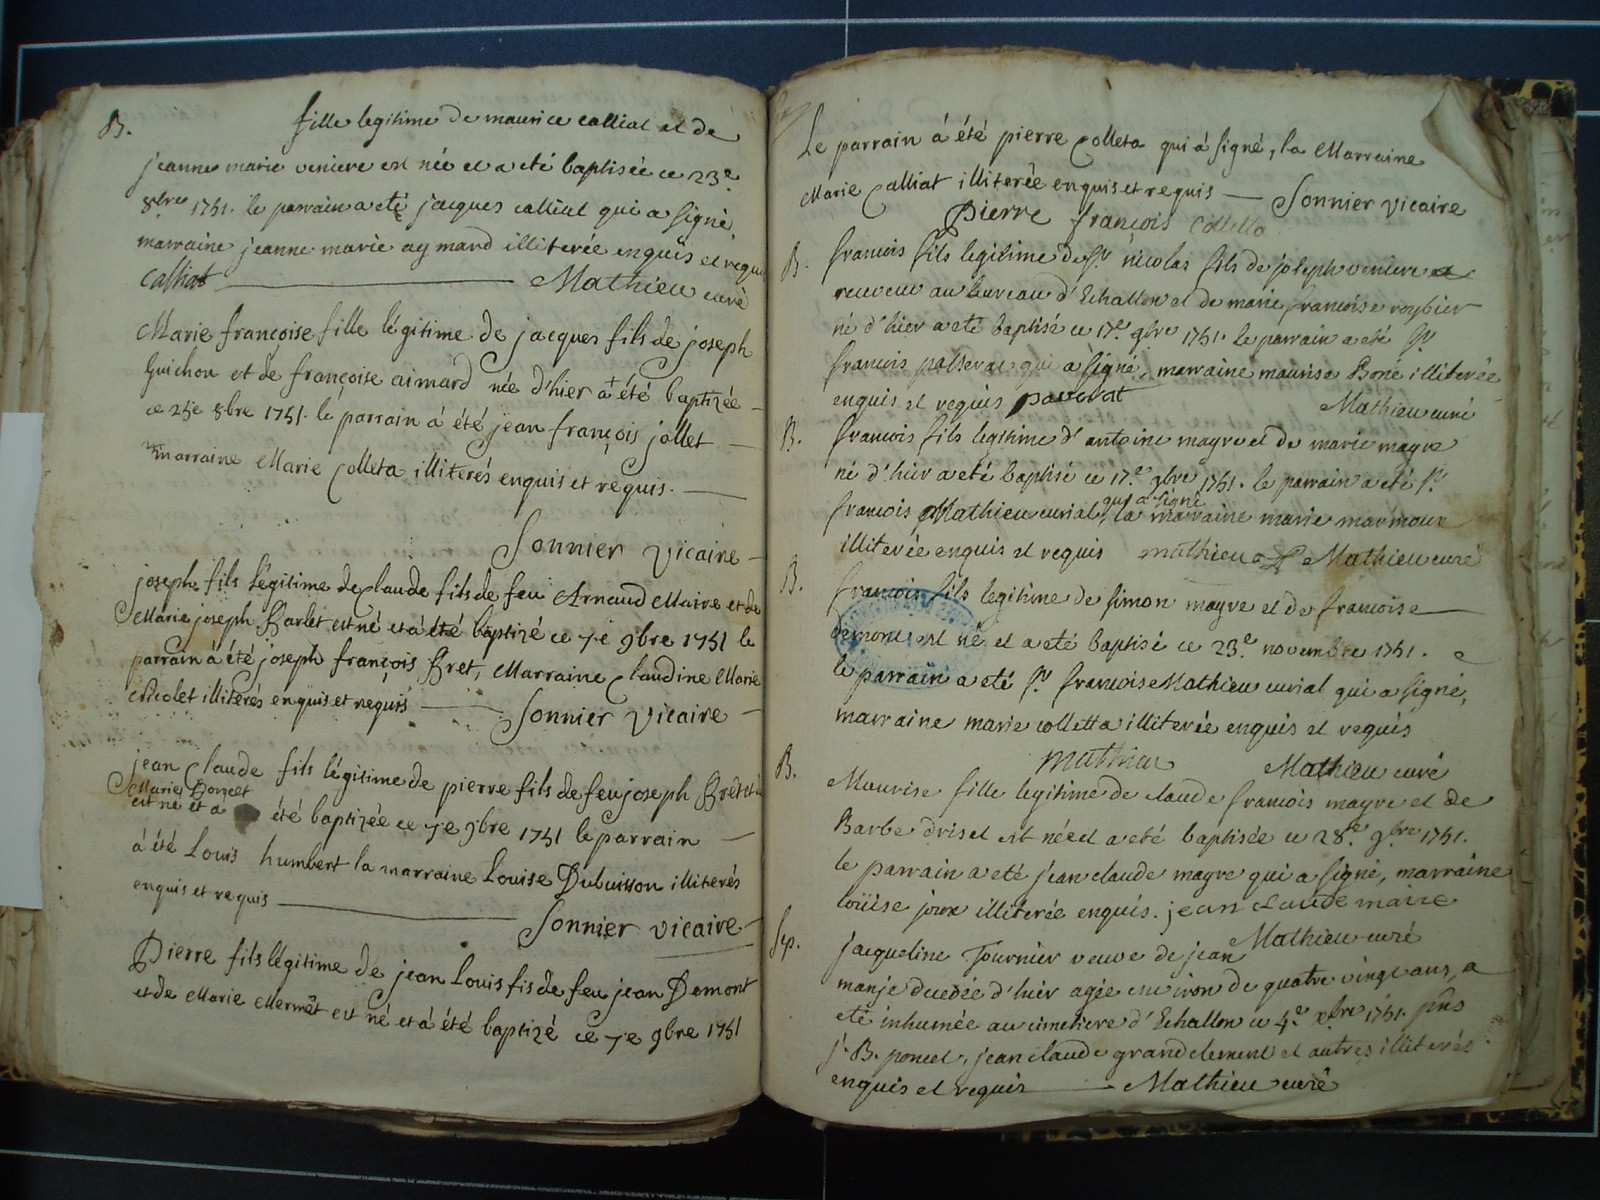 B. fille legitime de maurice calliat et de
jeanne marie veniere est née et a eté baptisée ce 23e
8bre 1751. le parrain a eté jacques calliat qui a signé
marraine jeanne marie aymard illiterée enquis et requis
Calliat Mathieu curé
Marie françoise fille légitime de jacques fils de joseph
Guichon et de françoise aimard née d'hier a été baptizée
ce 25e 8bre 1751. le parrain á été jean françois jollet
marraine Marie Colleta illiterés enquis et requis.
Sonnier vicaire
joseph fils légitime de Claude fils de feu Arnaud Maire et de
Marie joseph Barlet est né et á été baptizé ce 7e 9bre 1751 le
parrain á été joseph françois Bret, Marraine Claudine Marie
Nicolet illiterés enquis et requis Sonnier Vicaire
jean Claude fils légitime de pierre fils de feu joseph Bret et de
Marie Poncet
est né et a été baptizée ce 7e 9bre 1751 le parrain
á été Louis humbert la marraine Louise Dubuisson illiterés
enquis et requis Sonnier vicaire
Pierre fils légitime de jean Louis fis de feu jean Demont
et de Marie Mermêt est né et á été baptizé ce 7e 9bre 1751
Le parrain á été pierre Colleta qui á signé, la Marraine
Marie Calliat illiterée enquis et requis Sonnier vicaire
Pierre françois Colletta
B. francois fils legitime de sr nicolas fils de joseph veniere
receveur au bureau d'Echallon et de marie francoise roybier
né d'hier a eté baptisé ce 17e 9bre 1751. le parrain a eté sr
francois passerat qui a signé, marraine maurise Boné illiterée
enquis et requis paserat Mathieu curé
B. francois fils legitime d'antoine mayre et de marie mayre
né d'hier a eté baptisé ce 17e 9bre 1751. le parrain a eté sr
qui a signé
francois Mathieu curial, la marraine marie marmoux
illiterée enquis et requis mathieu Mathieu curé
B. francois fils legitime de simon mayre et de francoise
demont est né et a eté baptisé ce 23e novembre 1751.
le parrain a eté sr francoise Mathieu curial qui a signé,
marraine marie colletta illiterée enquis et requis
mathieu Mathieu curé
B. Maurise fille legitime de claude francois mayre et de
Barbe drisel est née et a eté baptisée ce 28e 9bre 1751.
le parrain a eté jean claude mayre qui a signé, marraine
loüise joux illiterée enquis. jean claude maire
Mathieu curé
Sep. jacqueline Tournier veuve de jean
manje decedée d'hier agée environ de quatre vingt ans, a
eté inhumée au cimetiere d'Echallon ce 4e xbre 1751. pns
j. B. poncet, jean claude grandclement et autres illiterés
enquis et requis Mathieu curé